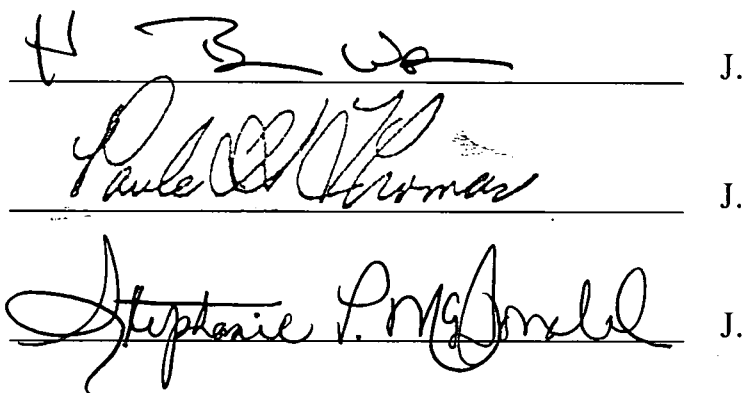 H B W J.
Paula H Thomas J.
Stephanie P. McDonald J.